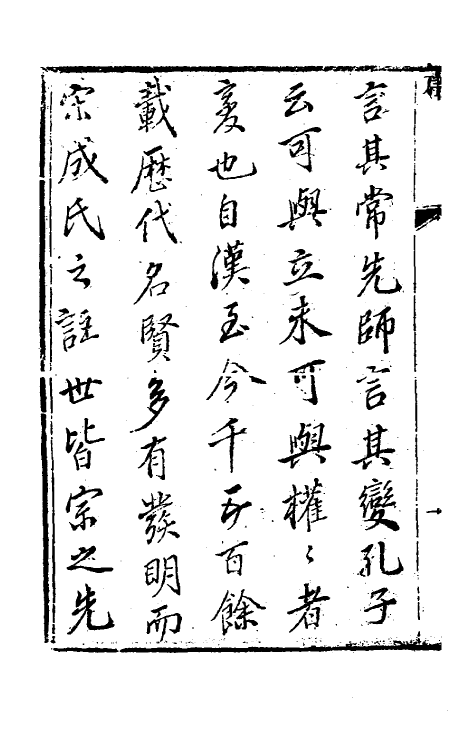 言其常先師言其變孔子
云可與立未可與權〻者
變也自漢至今千五百餘
載歷代名賢多有發明而
宋成氏之註世皆宗之先